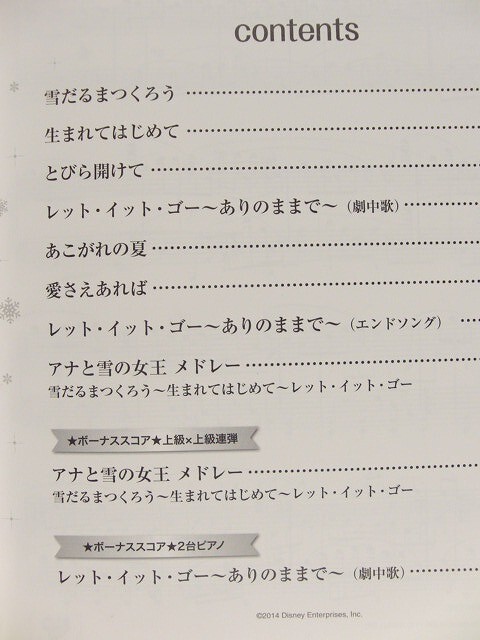 contents
雪だるまつくろう ……………………………
生まれてはじめて ……………………………
とびら開けて ……………………………
レット・イット・ゴー〜ありのままで〜（劇中歌）…………
あこがれの夏 ……………………………
愛さえあれば ……………………………
レット・イット・ゴー〜ありのままで〜（エンドソング） …
アナと雪の女王 メドレー ……………………
雪だるまつくろう〜生まれてはじめて〜レット・イット・ゴー
★ボーナススコア★上級×上級連弾
アナと雪の女王 メドレー ……………………
雪だるまつくろう〜生まれてはじめて〜レット・イット・ゴー
★ボーナススコア★2台ピアノ
レット・イット・ゴー〜ありのままで〜（劇中歌）…………
©2014 Disney Enterprises, Inc.